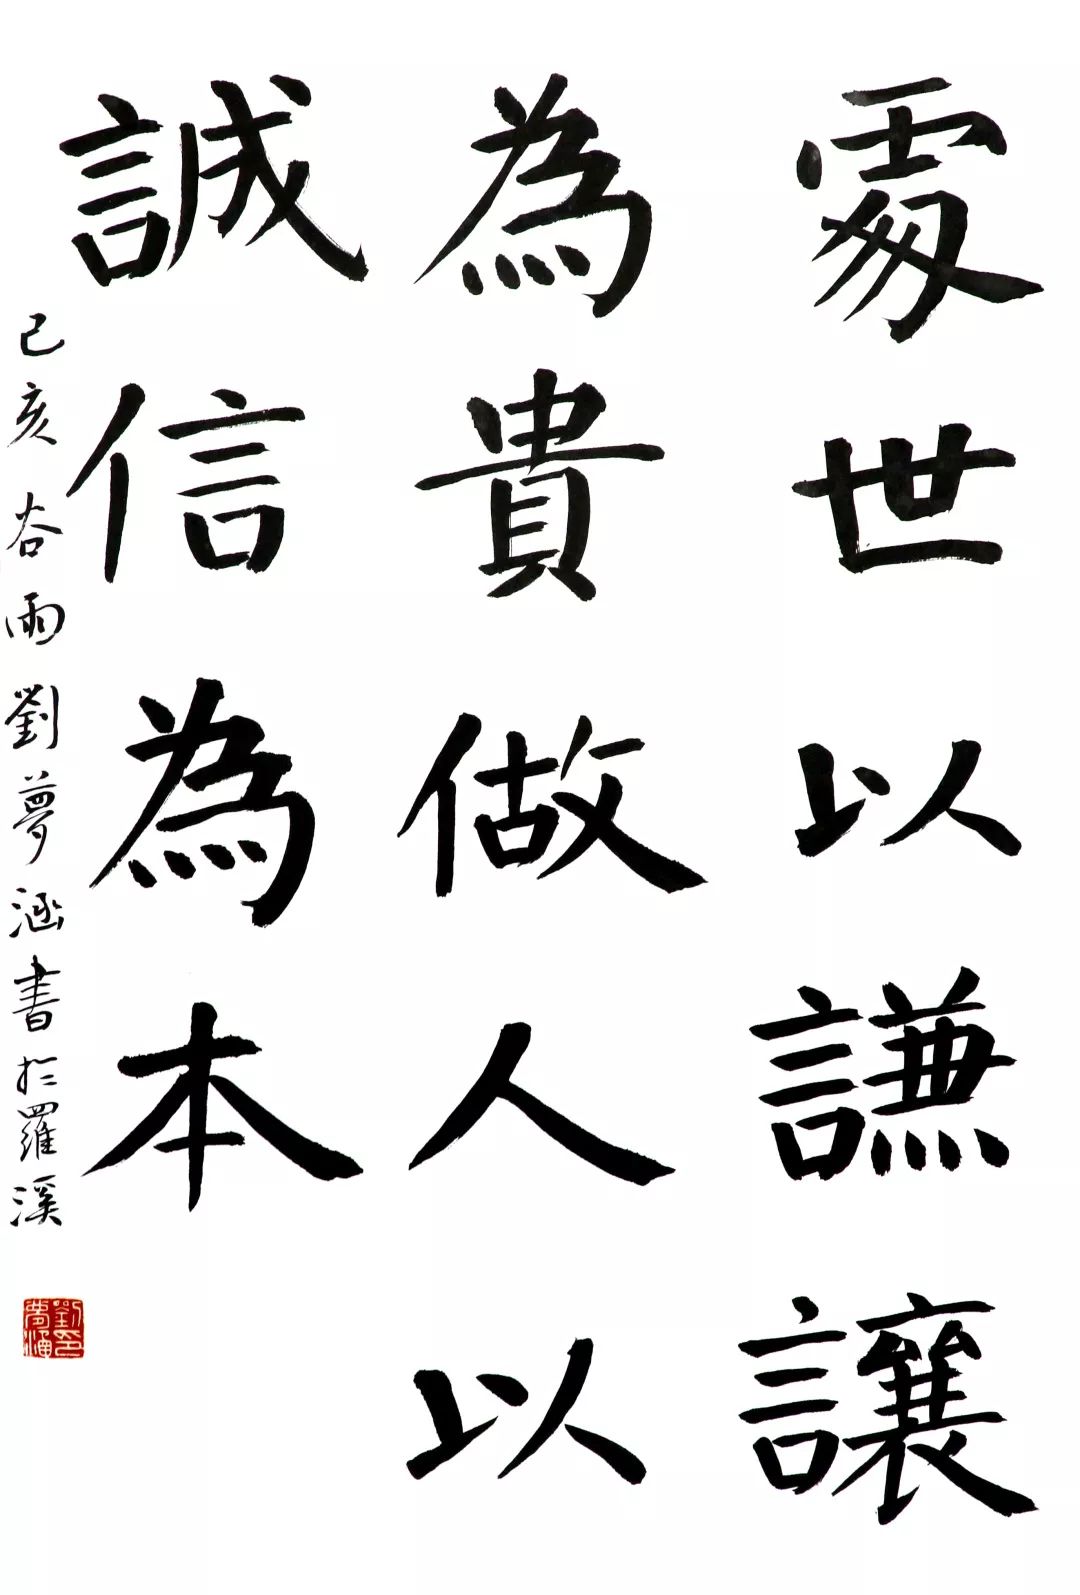 處世以謙讓
為貴做人以
誠信為本
己亥谷雨劉夢涵書於羅溪
劉夢涵印